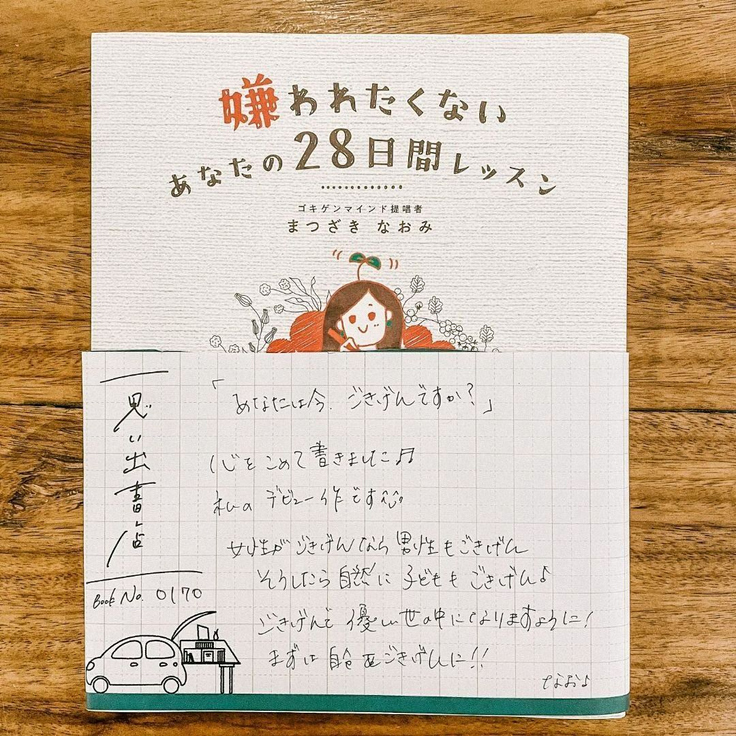 嫌われたくない
あなたの28日間レッスン
ゴキゲンマインド提唱者
まつざき なおみ
思い出書店
Book No. 0170
「あなたは今、ごきげんですか?」
心をこめて書きました♬
私のデビュー作です
女性がごきげんなら男性もごきげん
そうしたら自然に子どももごきげん♪
ごきげんで優しい世の中になりますように!
まずは自分をごきげんに!!